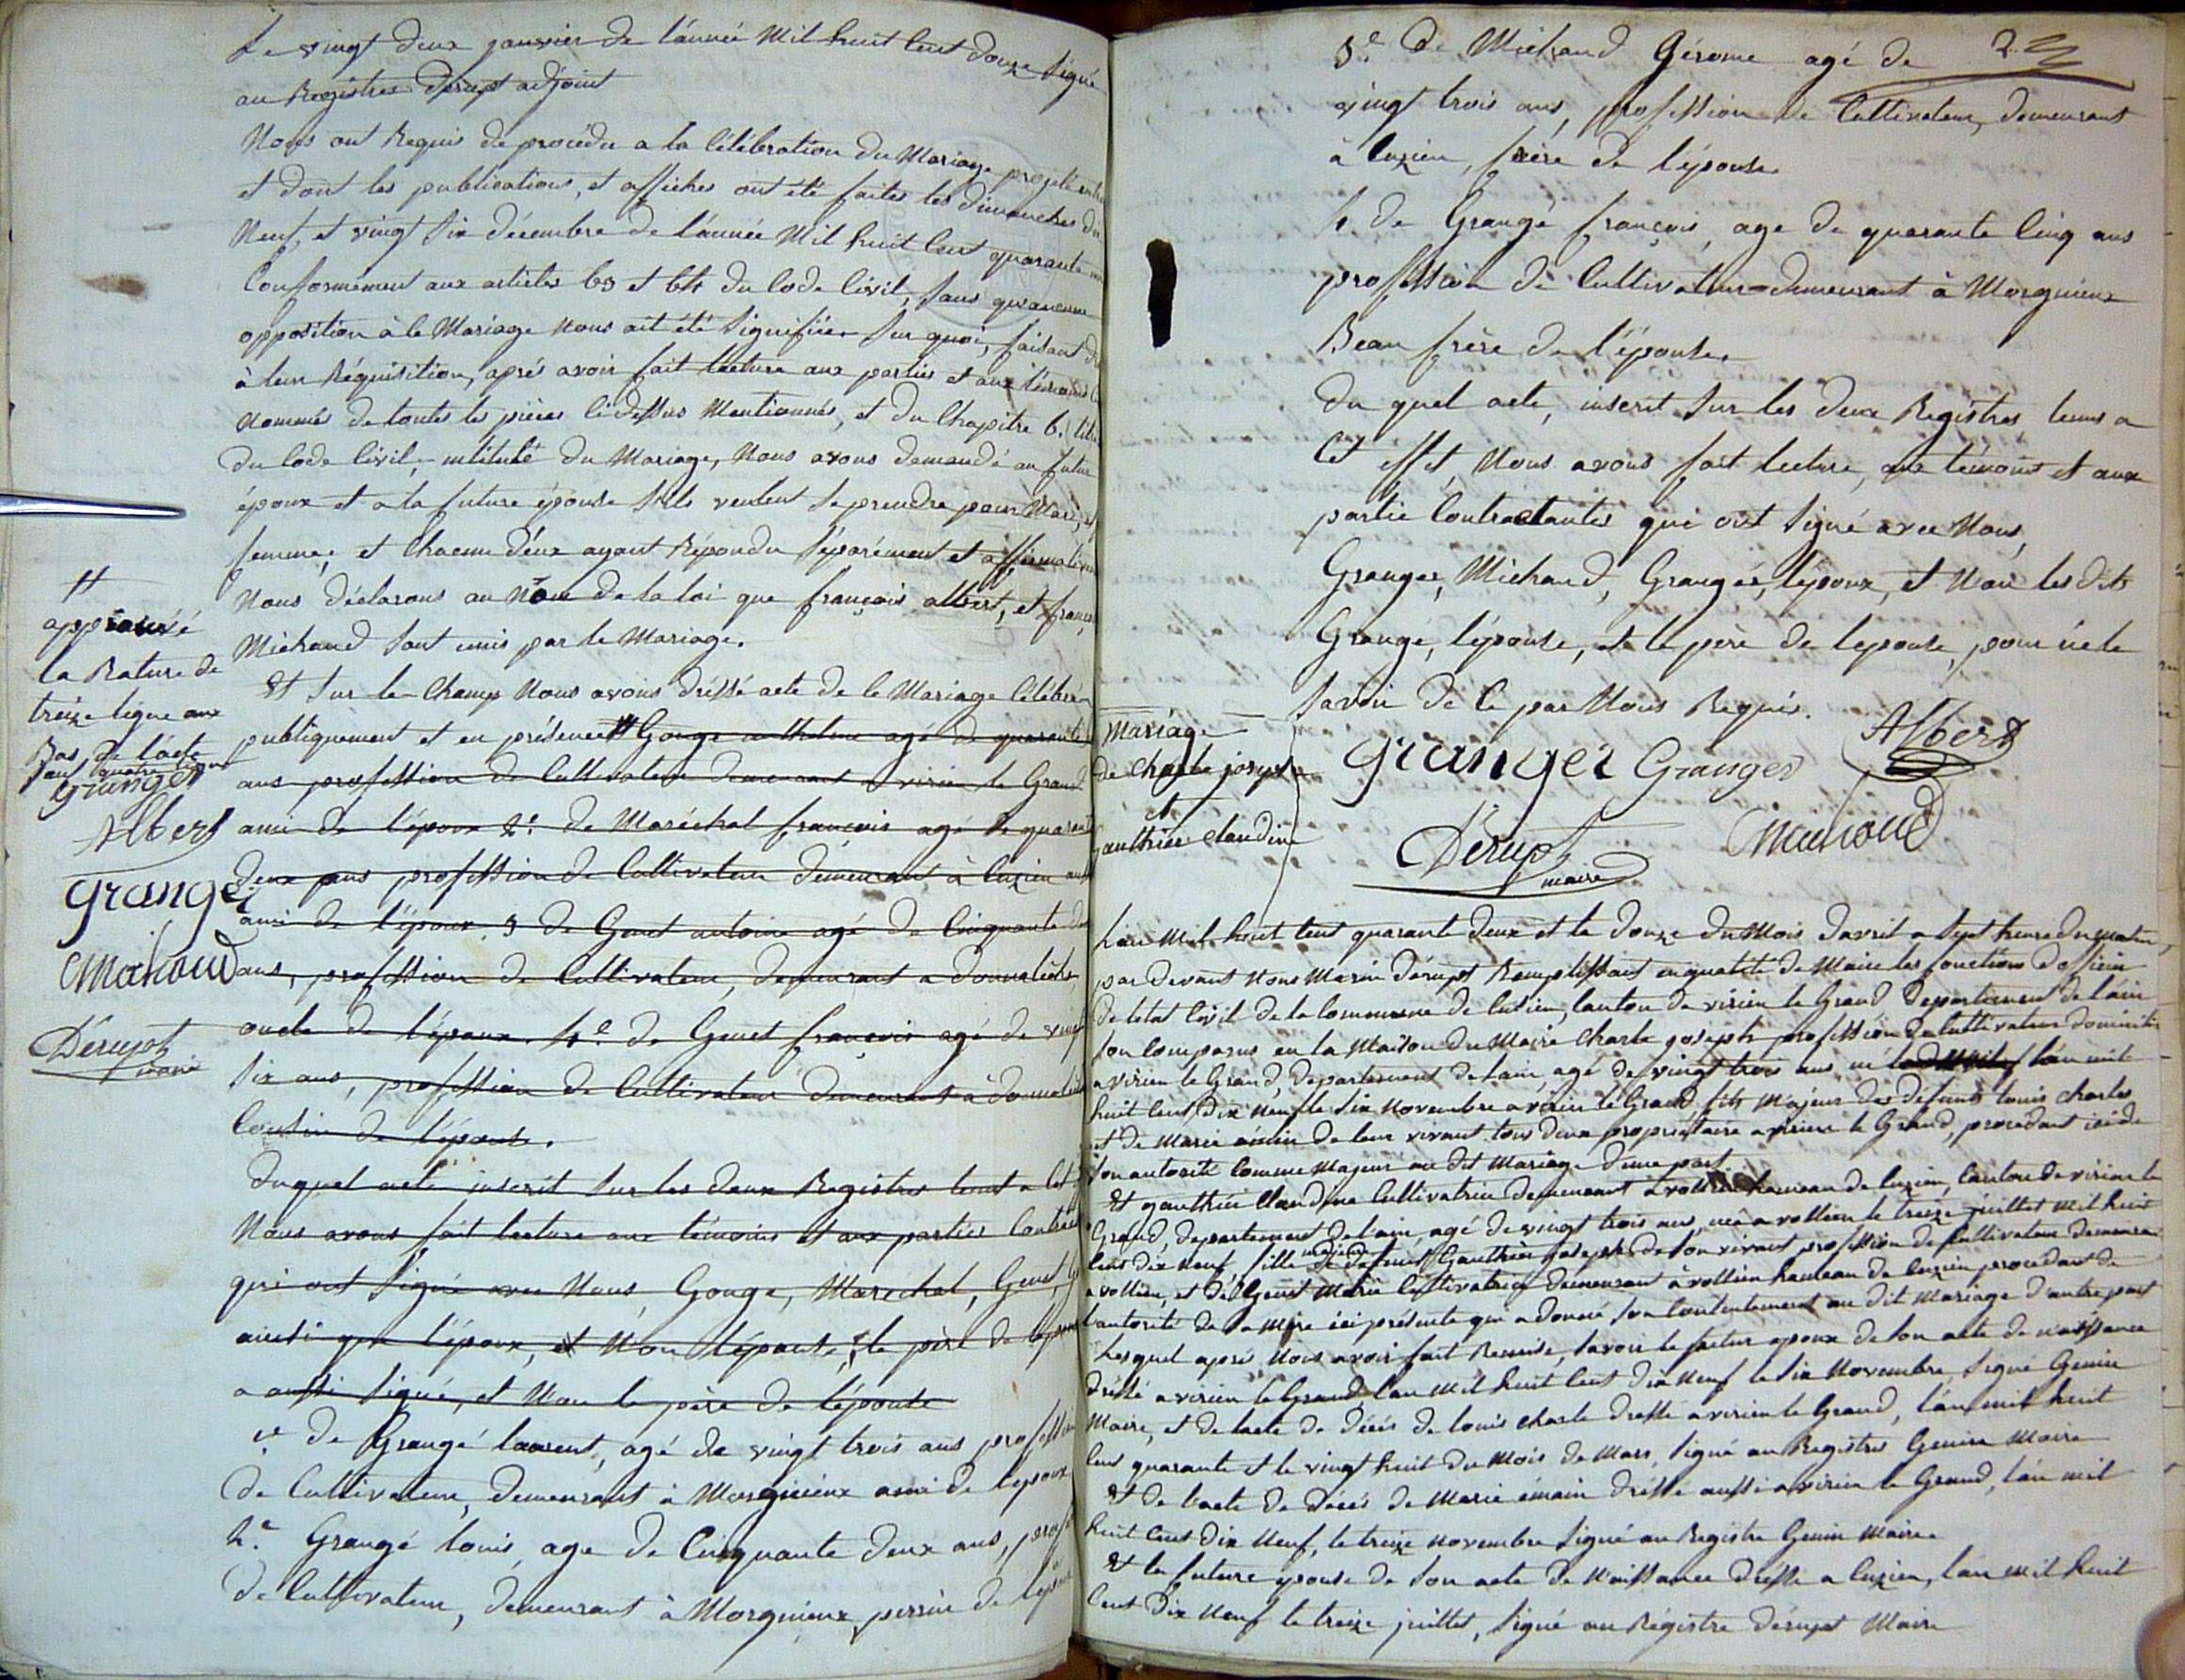 Le vingt deux janvier de l'année Mil huit Cent douze Signé
au Registres Dérupt adjoint
Nous ont Requis de procéder a la Célébration du Mariage projeté entre
et dont les publications, et affiches ont été faites les dimanches du
Neuf, et vingt Six décembre de l'année Mil huit Cent quarante
Conformément aux articles 63 et 64 du Code Civil, Sans qu'aucune
opposition à ce Mariage Nous ait été Signifiée. Sur quoi, faisant
à leur Réquisition, après avoir fait lecture aux parties et aux témoins
Nommés de toutes les pièces Ci dessus Mentionnés, et du Chapitre 6. titre
du Code Civil, intitulé du Mariage, Nous avons demandé au futur
époux et a la future épouse S'ils veulent Se prendre pour Mari, et
femme; et Chacun d'eux ayant Répondu Séparément et affirmativem
Nous déclarons au Nom de la loi que françois albert, et françoi
Michaud Sont unis par le Mariage.
Et Sur le Champ Nous avons dréssé acte de ce Mariage Célébré
publiquement et en présence # Gouge anthelme agé de quarante
ans profession de Cultivateur demeurant a virieu le Grand
ami de l'époux 2e. de Maréchal françois agé de quarante
deux ans profession de Cultivateur demeurant à Cuzieu aussi
ami de l'époux 3 de Genet antoine agé de Cinquante deux
ans, profession de Cultivateur, demeurant a donnalèche
oncle de l'époux. 4.e de Genet françois agé de vingt
Six ans, profession de Cultivateur demeurant à donnalèche
Cousin de l'épouse.
Duquel acte inscrit Sur les deux Registres tenus a Cet
Nous avons fait lecture aux témoins et aux parties Contrac
qui ont Signé avec Nous, Gouge, Marechal, Genet,
ainsi que l'époux, et Non l'épouse, le père de l'époux
a aussi Signé, et Non le père de l'épouse
1.e de Grangé laurent, agé de vingt trois ans profession
de Cultivateur, demeurant à Morgnieux ami de l'époux
2.e Grangé louis, age de Cinquante deux ans, prof
de Cultivateur, demeurant à Morgnieux, de l'ép
#
approuvé
la Rature de
treize ligne au
Bas de l'acte
Sauf quatre lignes
Granger
Albert
Granger
Michaud
Dérupt
maire
2.
3.e De Michaud Gérome agé de
vingt trois ans, profession de Cultivateur, demeurant
à Cuzieu, frère de l'épouse
4. de Grangé françois, age de quarante Cinq ans
profession de Cultivateur demeurant à Morgnieux
Beau frère de l'épouse.
du quel acte, inscrit Sur les deux Registres tenus a
Cet effet, Nous avons fait lecture, aux témoins et aux
partie Contractantes qui ont Signé avec Nous,
Granger, Michaud, Granger, l'époux, et Non les dits
Grangé, l'épouse, et le père de lepouse, pour ne le
Savoir de Ce par Nous Requis.
Granger Granger Albert
Dérupt maire Michaud
Mariage
de Charle joseph
et
gauthier claudine
L'an Mil huit Cent quarante deux et le douze du Mois d'avril a Sept heure du matin,
par devant Nous Marin dérupt Remplissant en qualité de Maire les fonctions d'officier
de l'etat Civil de la Commune de Cuzieu, Canton de virieu le Grand Département de l'ain
Son Comparus en la Maison du Maire Charle joseph profession de Cultivateur domicilié
a virieu le Grand, Departement de lain, agé de vingt trois ans né l'an mil
huit Cent dix Neuf le Six Novembre a virieu le Grand fils Majeur des défunts louis charles
et de Marie émain de leur vivant tous deux propriétaire a virieu le Grand, procédant ici de
Son autorité Comme Majeur au dit Mariage d'une part
Et gauthier Claudine Cultivatrice demeurant a vollien hameau de Cuzieu, Canton de virieu le
Grand, département de l'ain, agé de vingt trois ans, née a vollien le treize juillet Mil huit
Cent dix Neuf fille majeure de défunt Gauthier joseph de Son vivant profession de Cultivateur demeurant
a vollien, et de Genet Marie Cultivatrice demeurant à vollien hameau de Cuzieu procédant de
l'autorité de Sa Mère ici présente qui a donné Son Contentement au dit Mariage d'autre part
Lesquel après Nous avoir fait Remise, Savoir le futur epoux de Son acte de Naissance
dréssé a virieu le Grand l'an Mil huit Cent dix Neuf le Six Novembre, Signé Genin
Maire, et de l'acte de Décès de louis Charle dréssé a virieu le Grand, l'an mil huit
Cent quarante et le vingt huit du Mois de Mars, Signé au Registres Genin Maire
Et de l'acte de Décès de Marie émain dréssé aussi a virieu le Grand, l'an mil
huit Cent dix Neuf, le treize Novembre Signé au Registre Genin Maire.
Et la future epouse de Son acte de Naissance dréssé a Cuzieu, l'an Mil huit
Cent dix Neuf le treize juillet, Signé au Régistre dérupt Maire